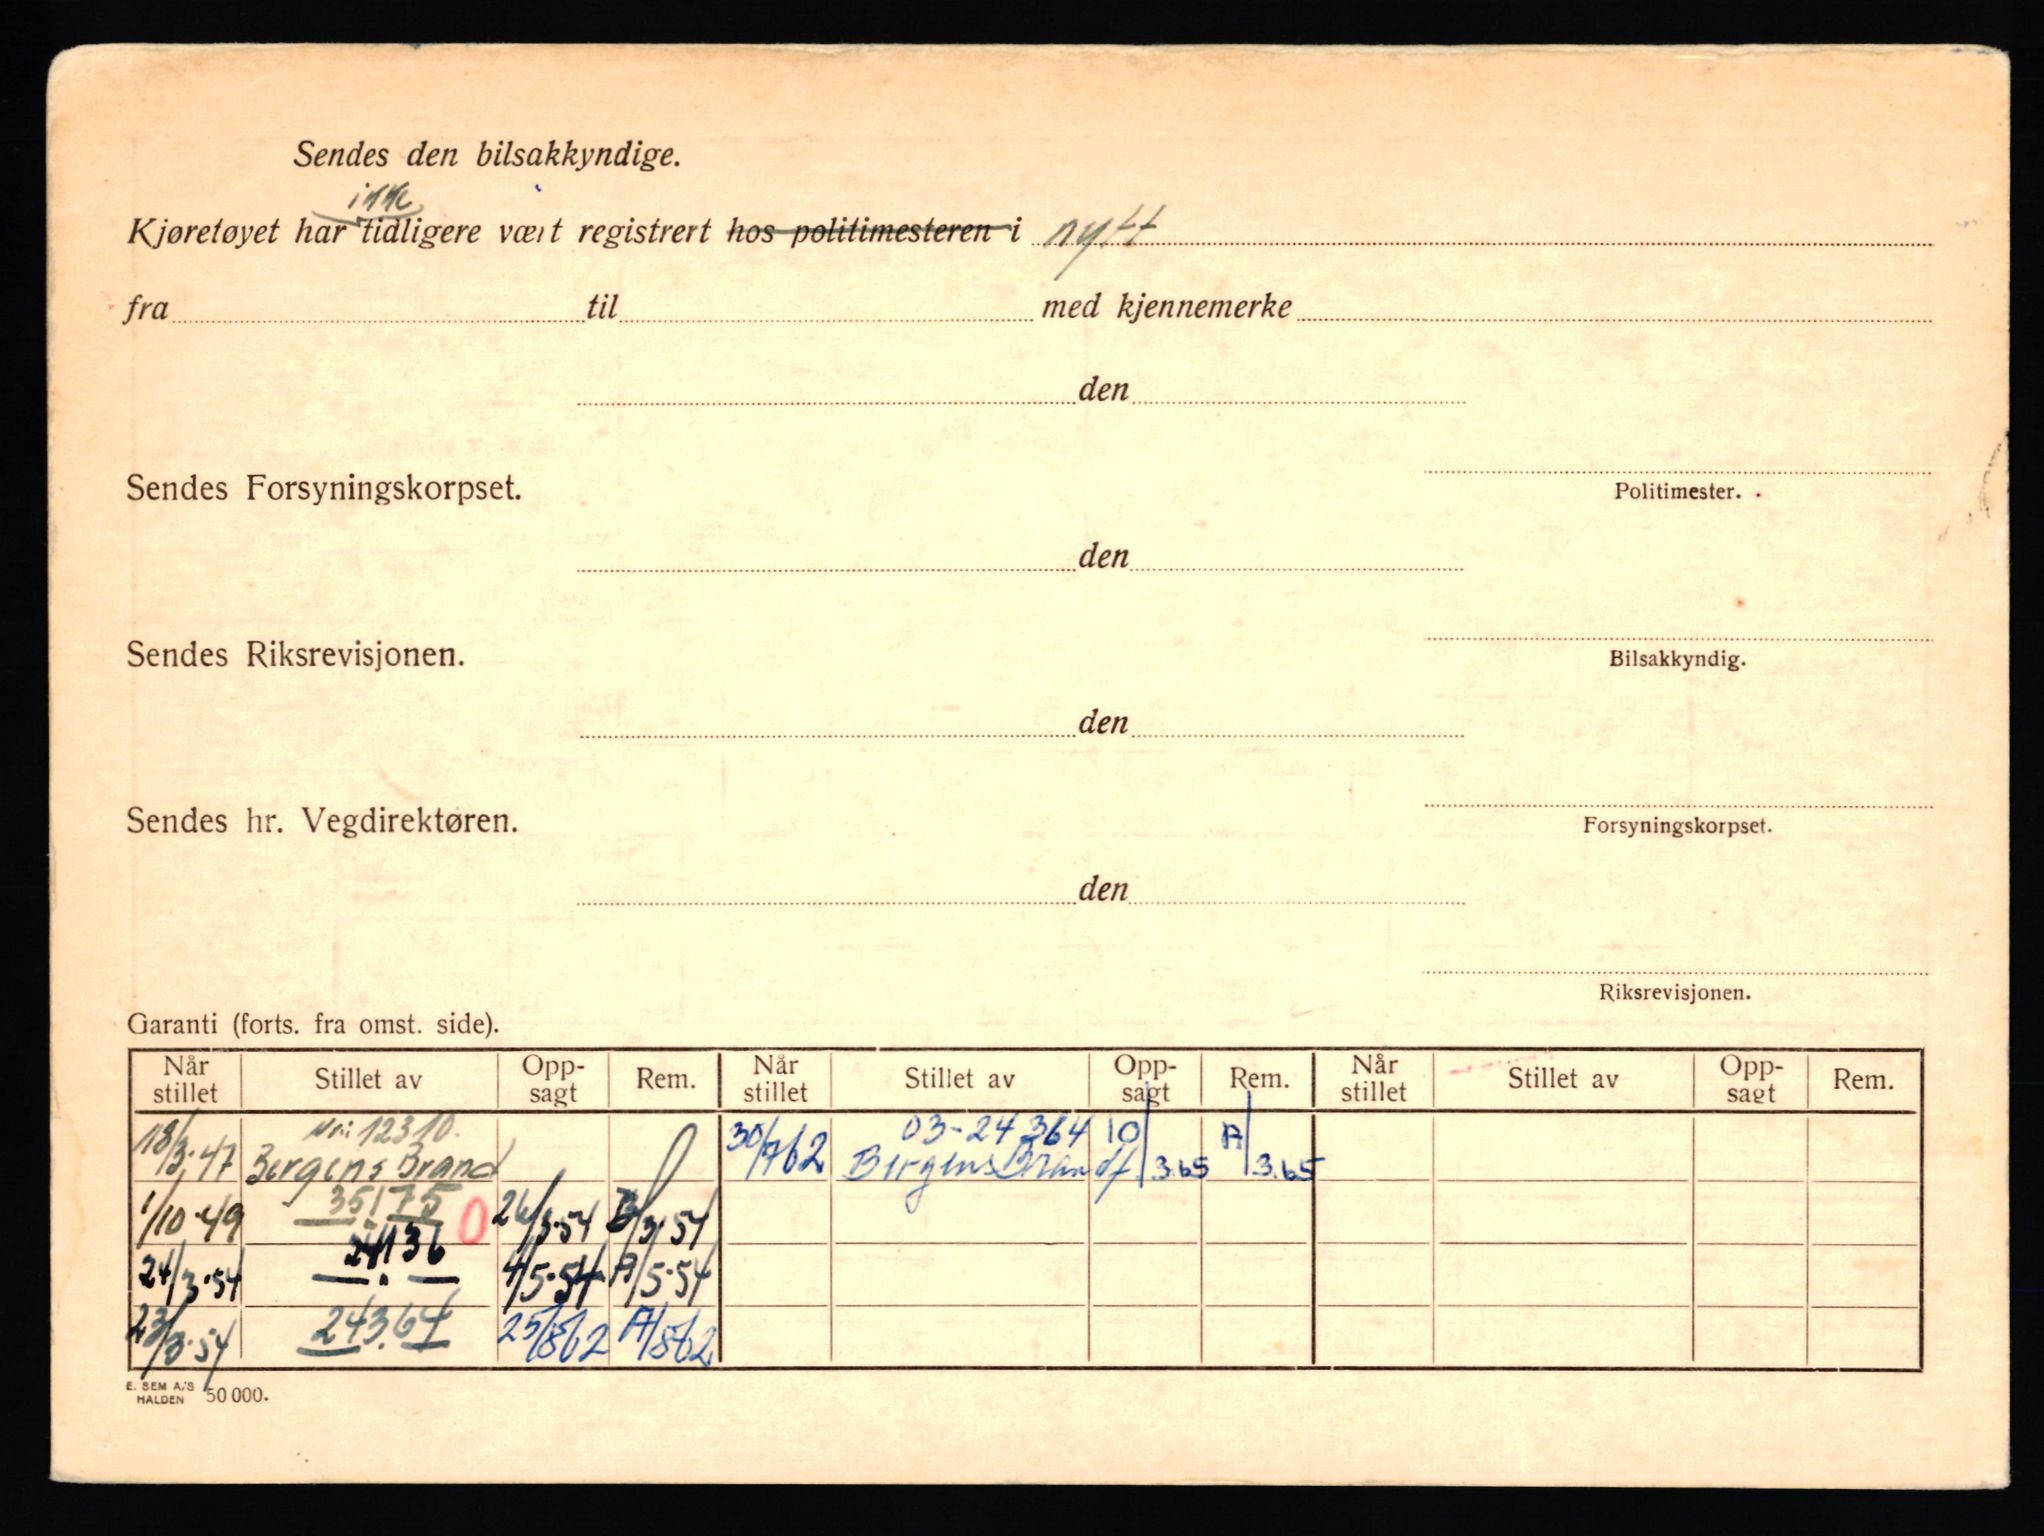 Sendes den bilsakkyndige.
ikke
Kjøretøyet har tidligere vært registrert hos politimesteren i nytt
fra til med kjennemerke
den
Sendes Forsyningskorpset.
Politimester.
den
Sendes Riksrevisjonen.
Bilsakkyndig.
den
Sendes hr. Vegdirektøren.
Forsyningskorpset.
den
Riksrevisjonen.
Garanti (forts. fra omst. side).
Når stillet Stillet av Opp-sagt Rem. Når stillet Stillet av Opp-sagt Rem. Når stillet Stillet av Opp-sagt Rem.
Nr: 12310. 03-24364
18/3.47 Bergens Brand 30/762 Bergens Brandf 10/3.65 A/3.65
35175
1/10.49 — " — 0 26/3.54 B/3.54
24136
24/3.54 — " — 4/5.54 A/5.54
24364
23/3.54 — " — 25/862 A/862
E. SEM A/S
HALDEN 50 000.